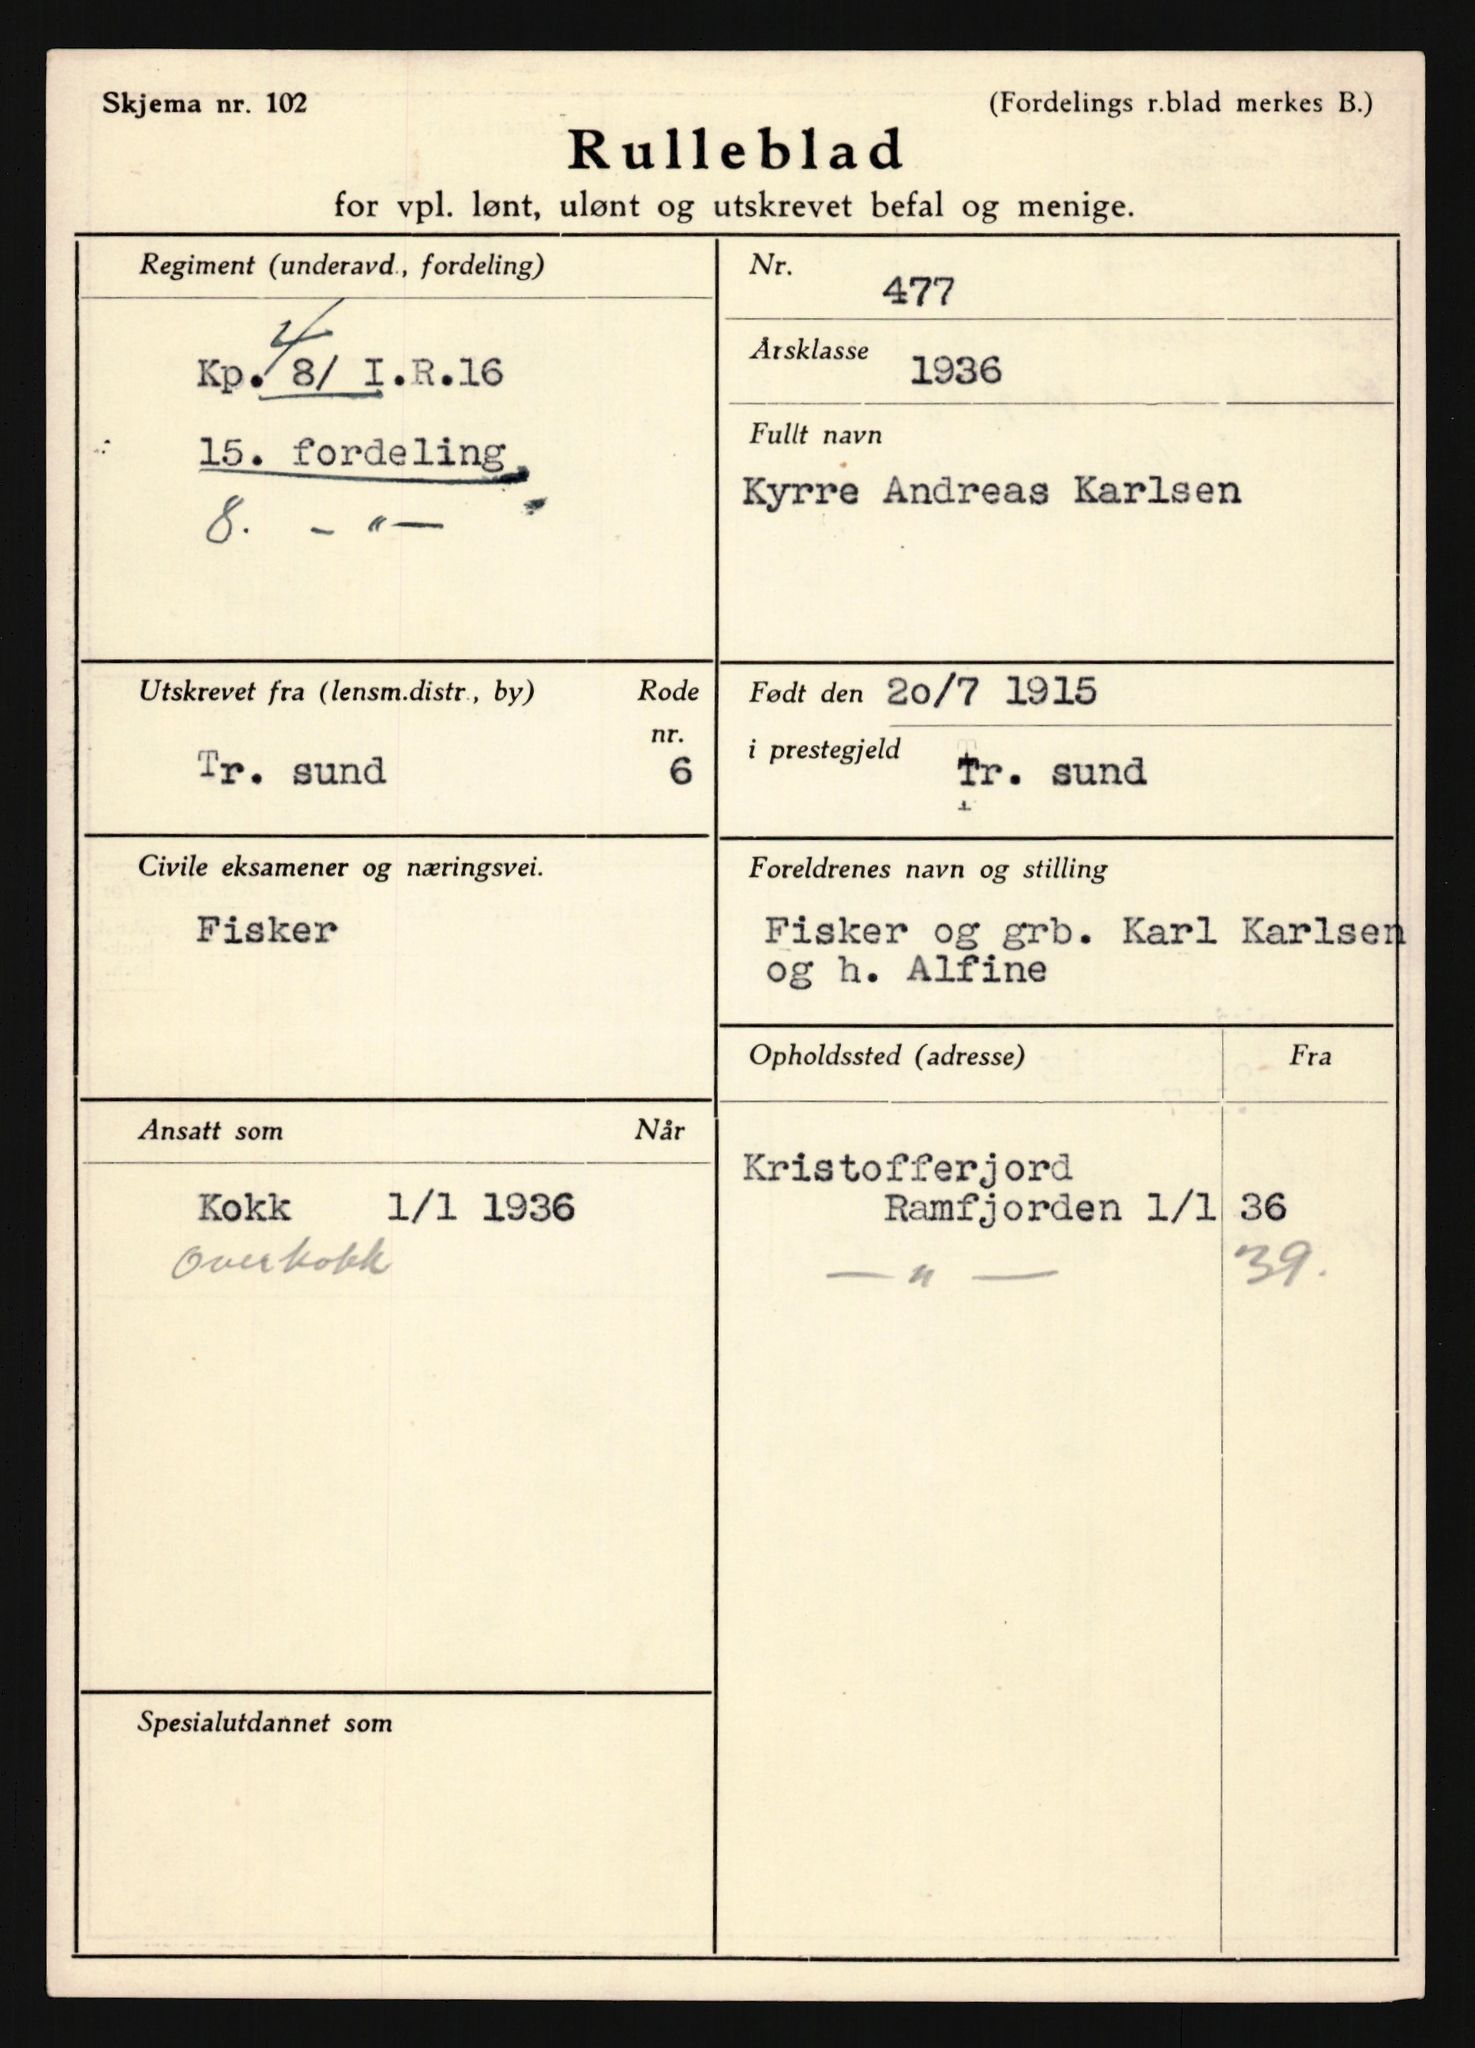 Skjema nr. 102
(Fordelings r.blad merkes B.)
Rulleblad
for vpl. lønt, ulønt og utskrevet befal og menige.
Regiment (underavd., fordeling)
4
Kp. 8/ I.R.16
15. fordeling
8. - " -
Nr.
477
Årsklasse
1936
Fullt navn
Kyrre Andreas Karlsen
Utskrevet fra (lensm.distr., by)
Rode
nr.
Tr. sund
6
Født den 20/7 1915
i prestegjeld
Tr. sund
Civile eksamener og næringsvei.
Fisker
Foreldrenes navn og stilling
Fisker og grb. Karl Karlsen
og h. Alfine
Opholdssted (adresse)
Fra
Kristofferjord
Ramfjorden 1/1 36
— " — 39.
Ansatt som
Når
Kokk 1/1 1936
Overkokk
Spesialutdannet som